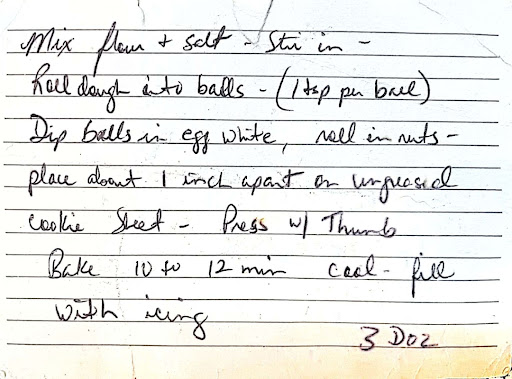 Mix flour + salt - Stir in -
Roll dough into balls - (1 tsp per ball)
Dip balls in egg white, roll in nuts -
place about 1 inch apart on ungreased
cookie Sheet - Press w/ Thumb
Bake 10 to 12 min cool - fill
with icing
3 Doz